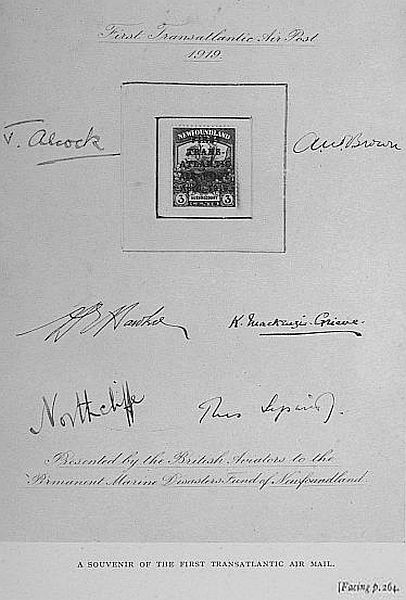 First Transatlantic Air Post
1919.
J. Alcock
A W Brown
NEWFOUNDLAND
FIRST
TRANS-
ATLANTIC
AIR POST
3 CENTS 3
H G Hawker
K. Mackenzie-Grieve.
Northcliffe
Thos
Presented by the British Aviators to the
Permanent Marine Disasters Fund of Newfoundland.
A SOUVENIR OF THE FIRST TRANSATLANTIC AIR MAIL.
[Facing p. 264.